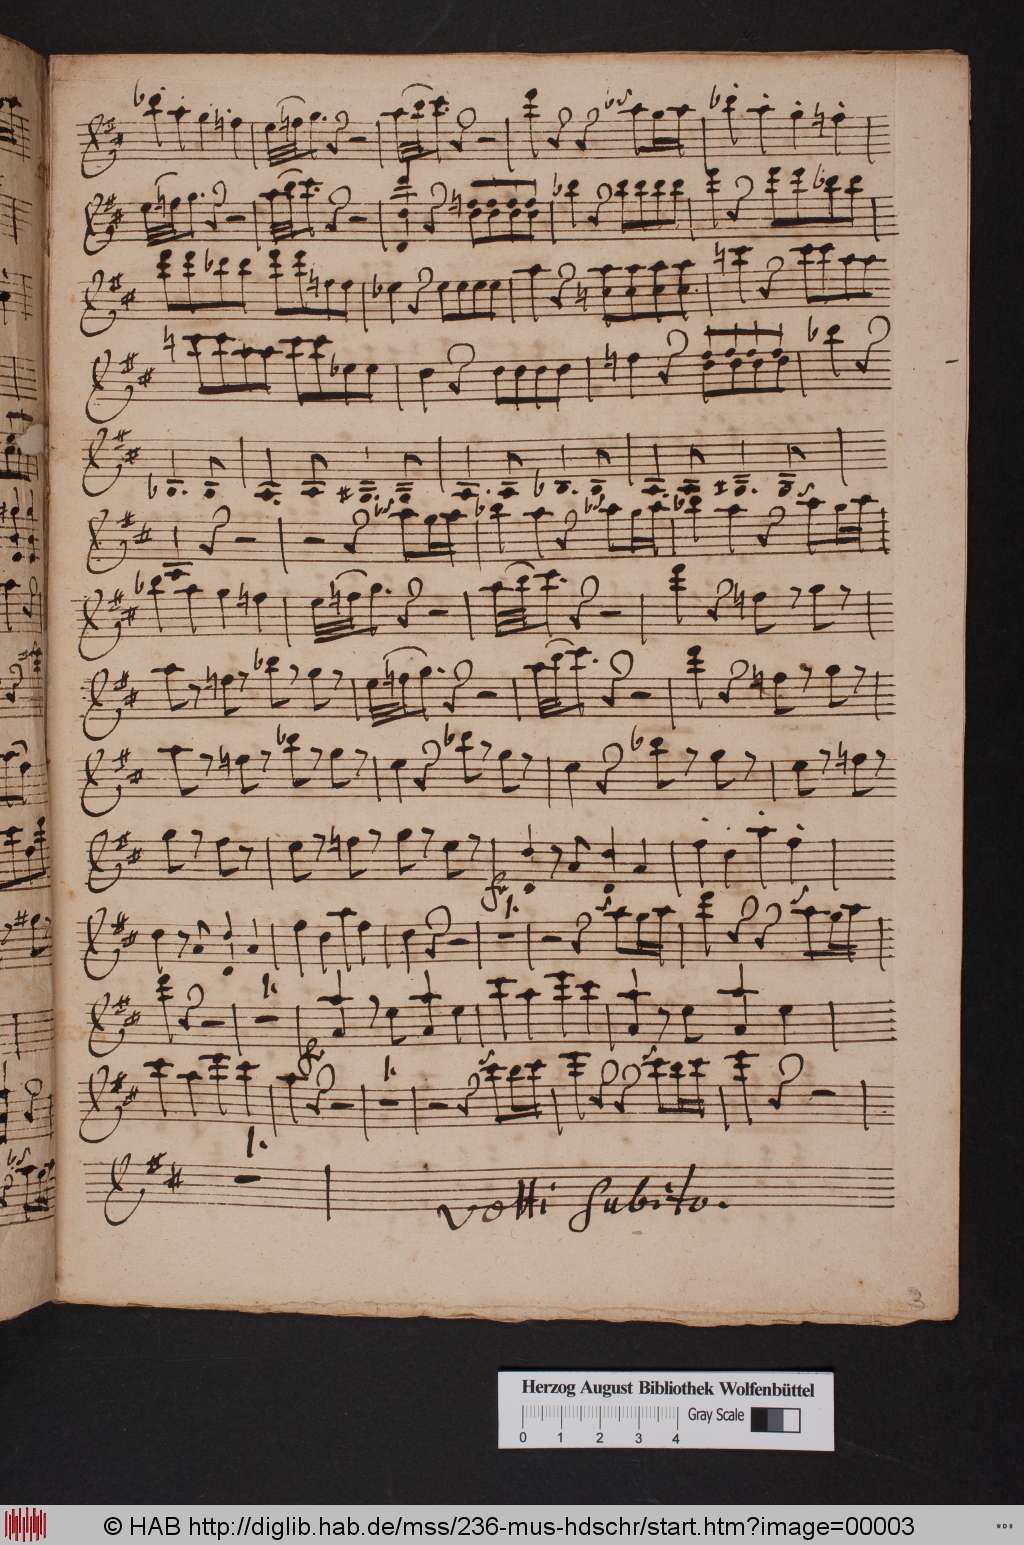 fr
1.
1.
fr
1.
1.
Volti Subito.
3
Herzog August Bibliothek Wolfenbüttel
Gray Scale
0 1 2 3 4
© HAB http://diglib.hab.de/mss/236-mus-hdschr/start.htm?image=00003